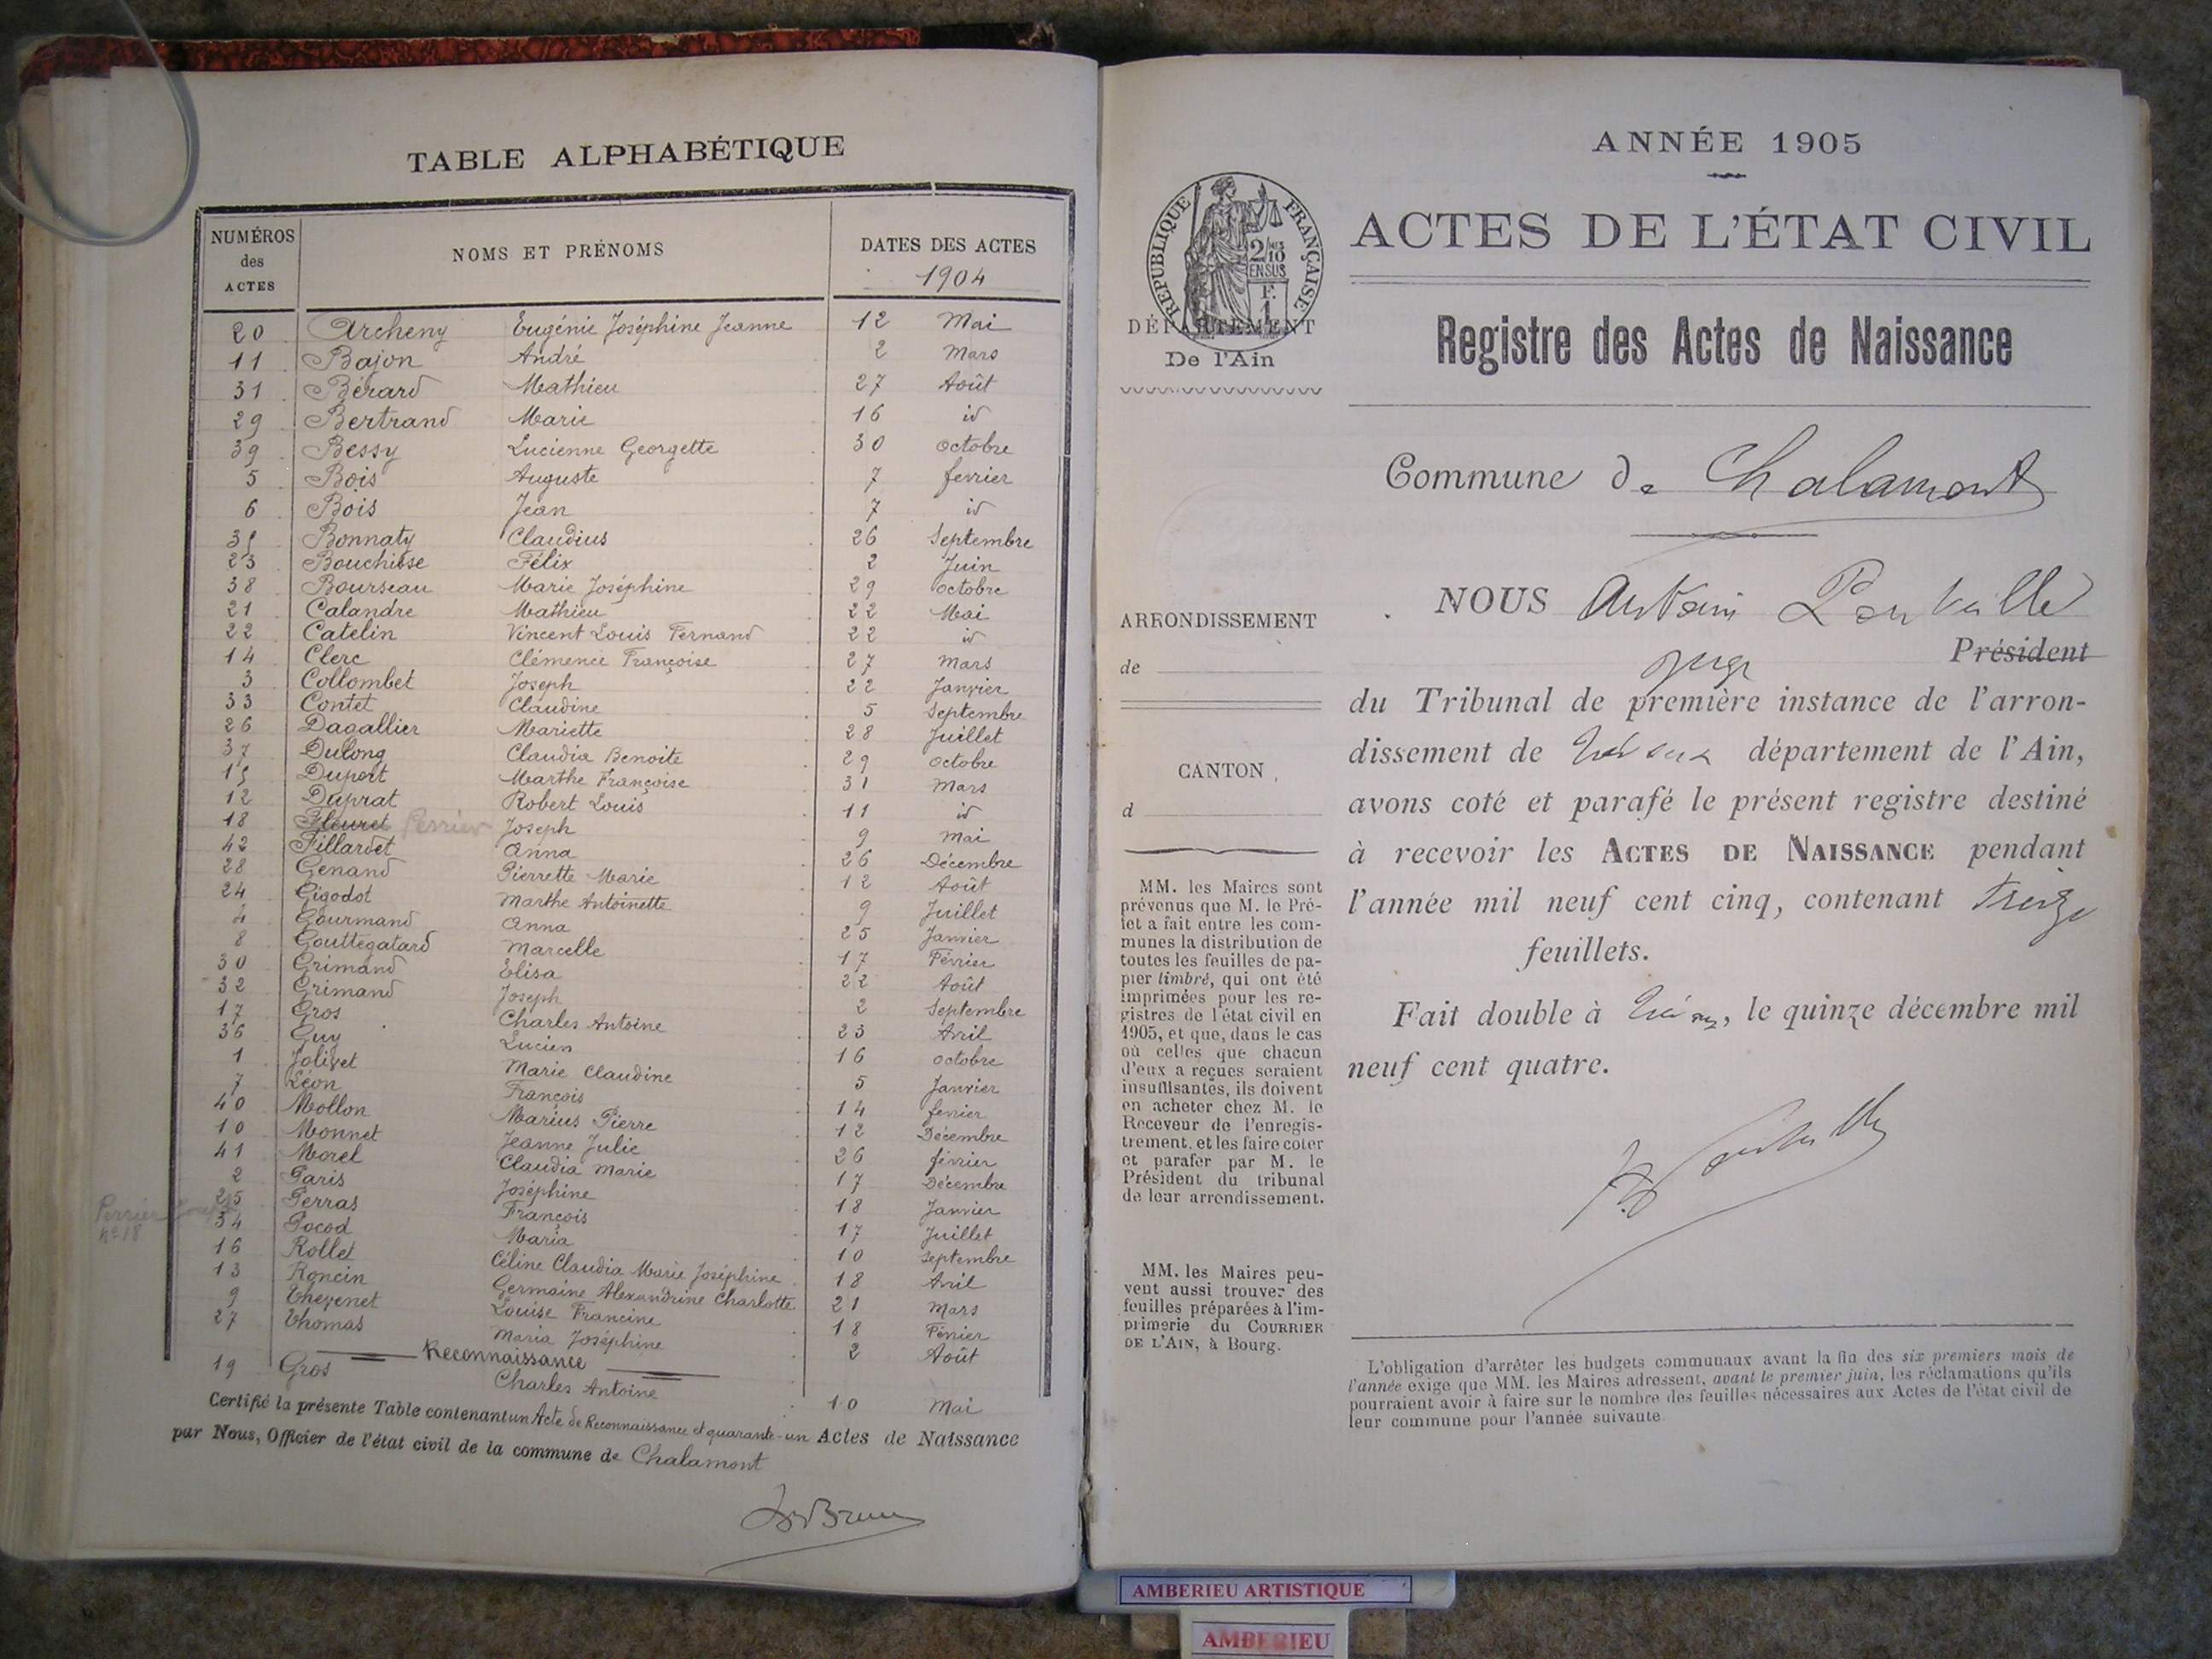 TABLE ALPHABÉTIQUE
NUMÉROS des ACTES NOMS ET PRÉNOMS DATES DES ACTES
1904
20 Archeny Eugénie Joséphine Jeanne 12 Mai
11 Bajon André 2 Mars
31 Bérard Mathieu 27 Août
29 Bertrand Marie 16 id
39 Bessy Lucienne Georgette 30 octobre
5 Bois Auguste 7 fevrier
6 Bois Jean 7 id
35 Bonnaty Claudius 26 Septembre
23 Félix 2 Juin
38 Bourseau Marie Joséphine 29 octobre
21 Calandre Mathieu 22 Mai
22 Catelin Vincent Louis Fernand 22 id
14 Clerc Clémence Françoise 27 Mars
3 Collombet Joseph 22 Janvier
33 Contet Claudine 5 Septembre
26 Dagallier Mariette 28 Juillet
37 Dulong Claudia Benoite 29 octobre
15 Duport Marthe Françoise 31 Mars
12 Duprat Robert Louis 11 id
18 Fleuret Perrier Joseph 9 mai
42 Fillardet Anna 26 Décembre
28 Genand Pierrette Marie 12 Août
24 Gigodot Marthe Antoinette 9 Juillet
4 Gourmand Anna 25 Janvier
8 Gouttegatard Marcelle 17 Février
30 Grimand Elisa 22 Août
32 Grimand Joseph 2 Septembre
17 Gros Charles Antoine 23 Avril
36 Guy Lucien 16 octobre
1 Jolivet Marie Claudine 5 Janvier
7 Léon François 14 fevrier
40 Mollon Marius Pierre 12 Décembre
10 Monnet Jeanne Julie 26 février
41 Morel Claudia Marie 17 Décembre
2 Paris Joséphine 18 Janvier
25 Perras François 17 Juillet
Perrier Joseph
n° 18
34 Pocod Maria 10 Septembre
16 Rollet Céline Claudia Marie Joséphine 18 Avril
13 Roncin Germaine Alexandrine Charlotte 21 Mars
9 Thevenet Louise Francine 18 Février
27 Thomas Maria Joséphine 2 Août
Reconnaissance
19 Gros Charles Antoine 10 Mai
Certifié la présente Table contenant un Acte de Reconnaissance et quarante-un Actes de Naissance
par Nous, Officier de l'état civil de la commune de Chalamont
ANNÉE 1905
ACTES DE L'ÉTAT CIVIL
RÉPUBLIQUE FRANÇAISE
2/10 EN SUS
F. 1
DÉPARTEMENT
De l'Ain
Registre des Actes de Naissance
Commune de Chalamont
NOUS Antoine
Président
juge
du Tribunal de première instance de l'arron-
dissement de Trévoux département de l'Ain,
avons coté et parafé le présent registre destiné
à recevoir les ACTES DE NAISSANCE pendant
l'année mil neuf cent cinq, contenant treize
feuillets.
Fait double à Trévoux, le quinze décembre mil
neuf cent quatre.
ARRONDISSEMENT
de
CANTON
d
MM. les Maires sont
prévenus que M. le Pré-
fet a fait entre les com-
munes la distribution de
toutes les feuilles de pa-
pier timbré, qui ont été
imprimées pour les re-
gistres de l'état civil en
1905, et que, dans le cas
où celles que chacun
d'eux a reçues seraient
insuffisantes, ils doivent
en acheter chez M. le
Receveur de l'enregis-
trement, et les faire coter
et parafer par M. le
Président du tribunal
de leur arrondissement.
MM. les Maires peu-
vent aussi trouver des
feuilles préparées à l'im-
primerie du COURRIER
DE L'AIN, à Bourg.
L'obligation d'arrêter les budgets communaux avant la fin des six premiers mois de
l'année exige que MM. les Maires adressent, avant le premier juin, les réclamations qu'ils
pourraient avoir à faire sur le nombre des feuilles nécessaires aux Actes de l'état civil de
leur commune pour l'année suivante.
AMBERIEU ARTISTIQUE
AMBERIEU